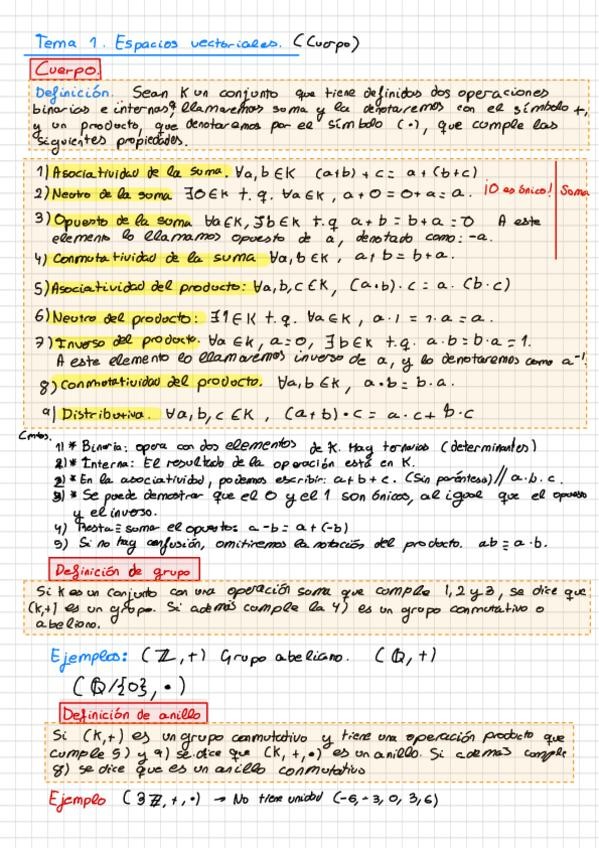 Tema 1. Espacios vectoriales. (Cuerpo)
Cuerpo.
Definición. Sean K un conjunto que tiene definidas dos operaciones
binarias e internas, llamaremos suma y la denotaremos con el símbolo +,
y un producto, que denotaremos por el símbolo (·), que cumple las
siguientes propiedades.
1) Asociatividad de la suma. ∀a,b∈K (a+b)+c = a+(b+c)
2) Neutro de la suma ∃0∈K t.q. ∀a∈K, a+0=0+a=a. ¡0 es único! Suma
3) Opuesto de la suma ∀a∈K, ∃b∈K t.q. a+b=b+a=0 A este
elemento lo llamamos opuesto de a, denotado como: -a.
4) Conmutatividad de la suma ∀a,b∈K, a+b=b+a.
5) Asociatividad del producto: ∀a,b,c∈K, (a·b)·c = a·(b·c)
6) Neutro del producto: ∃1∈K t.q. ∀a∈K, a·1=1·a=a.
7) Inverso del producto. ∀a∈K, a=0, ∃b∈K t.q. a·b=b·a=1.
A este elemento lo llamaremos inverso de a, y lo denotaremos como a⁻¹.
8) Conmotatividad del producto. ∀a,b∈K, a·b=b·a.
9) Distributiva. ∀a,b,c∈K, (a+b)·c = a·c+b·c
Cmtos.
1) * Binaria: opera con dos elementos de K. Hay ternarias (determinantes)
2) * Interna: El resultado de la operación está en K.
2) * En la asociatividad, podemos escribir: a+b+c. (Sin paréntesis) // a·b·c.
3) * Se puede demostrar que el 0 y el 1 son únicos, al igual que el opuesto
y el inverso.
4) Resta ≡ sumar el opuesto: a-b=a+(-b)
5) Si no hay confusión, omitiremos la notación del producto. ab ≡ a·b.
Definición de grupo
Si K es un conjunto con una operación suma que cumple 1, 2 y 3, se dice que
(K,+) es un grupo. Si además cumple la 4) es un grupo conmutativo o
abeliano.
Ejemplos: (ℤ,+) Grupo abeliano. (ℚ,+)
(ℚ/{0},·)
Definición de anillo
Si (K,+) es un grupo conmutativo y tiene una operación producto que
cumple 5) y 9) se dice que (K,+,·) es un anillo. Si además cumple
8) se dice que es un anillo conmutativo
Ejemplo (3ℤ,+,·) → No tiene unidad (-6,-3,0,3,6)